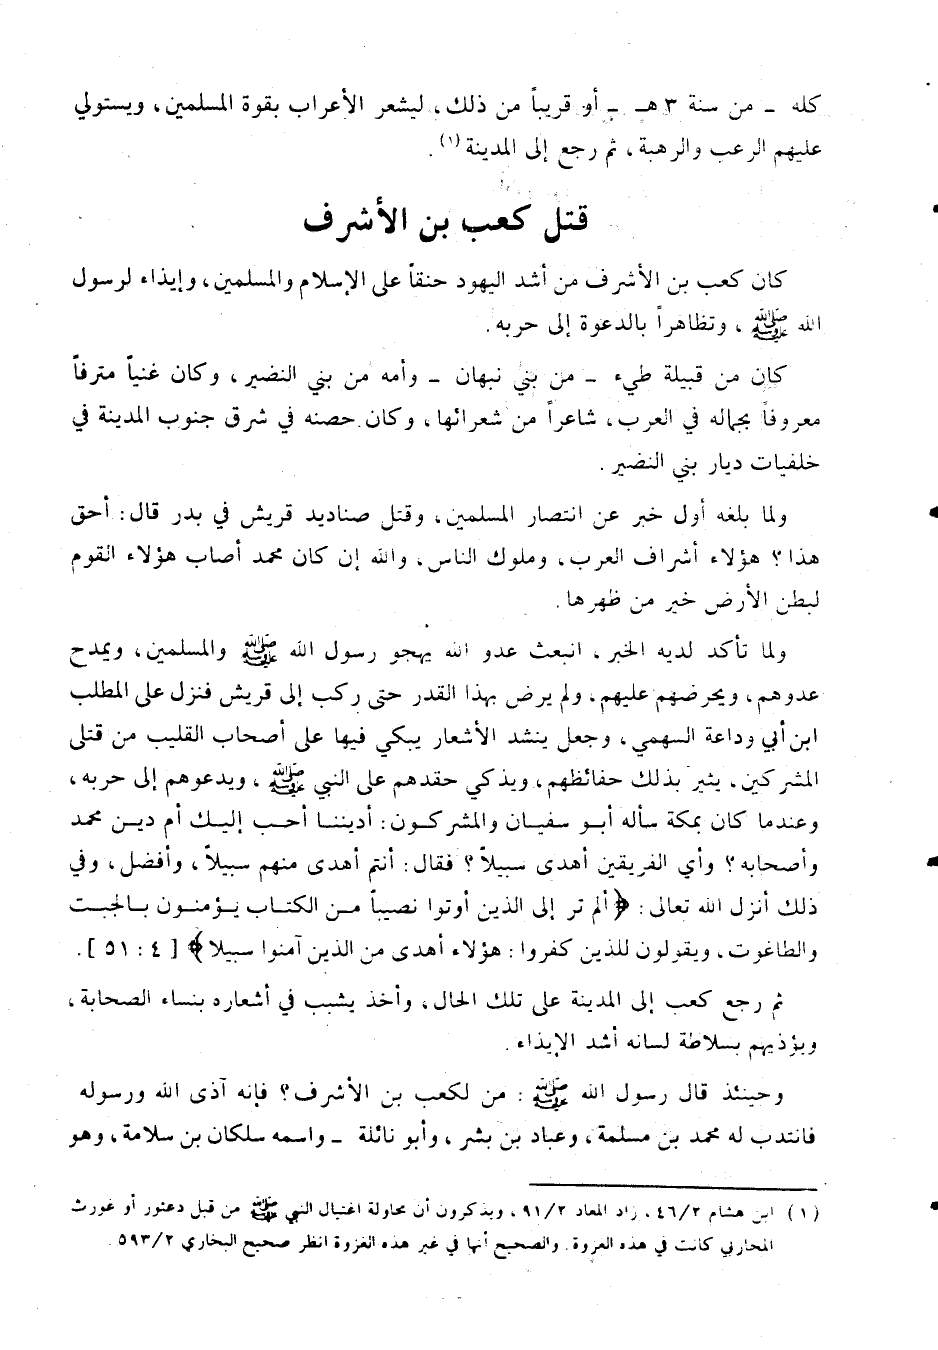 كله ـ من سنة ٣ هـ ـ أو قريباً من ذلك، ليشعر الأعراب بقوة المسلمين، ويستولي
عليهم الرعب والرهبة، ثم رجع إلى المدينة (١).
قتل كعب بن الأشرف
كان كعب بن الأشرف من أشد اليهود حنقاً على الإسلام والمسلمين، وإيذاء لرسول
الله ﷺ، وتظاهراً بالدعوة إلى حربه.
كان من قبيلة طيء ـ من بني نبهان ـ وأمه من بني النضير، وكان غنياً مترفاً
معروفاً بجماله في العرب، شاعراً من شعرائها، وكان حصنه في شرق جنوب المدينة في
خلفيات ديار بني النضير.
ولما بلغه أول خبر عن انتصار المسلمين، وقتل صناديد قريش في بدر قال: أحق
هذا؟ هؤلاء أشراف العرب، وملوك الناس، والله إن كان محمد أصاب هؤلاء القوم
لبطن الأرض خير من ظهرها.
ولما تأكد لديه الخبر، انبعث عدو الله يهجو رسول الله ﷺ والمسلمين، ويمدح
عدوهم، ويحرضهم عليهم، ولم يرض بهذا القدر حتى ركب إلى قريش فنزل على المطلب
ابن أبي وداعة السهمي، وجعل ينشد الأشعار يبكي فيها على أصحاب القليب من قتلى
المشركين، يثير بذلك حفائظهم، ويذكي حقدهم على النبي ﷺ، ويدعوهم إلى حربه،
وعندما كان بمكة سأله أبو سفيان والمشركون: أديننا أحب إليك أم دين محمد
وأصحابه؟ وأي الفريقين أهدى سبيلاً؟ فقال: أنتم أهدى منهم سبيلاً، وأفضل، وفي
ذلك أنزل الله تعالى: ﴿ألم تر إلى الذين أوتوا نصيباً من الكتاب يؤمنون بالجبت
والطاغوت، ويقولون للذين كفروا: هؤلاء أهدى من الذين آمنوا سبيلا﴾ [٤ : ٥١].
ثم رجع كعب إلى المدينة على تلك الحال، وأخذ يشبب في أشعاره بنساء الصحابة،
ويؤذيهم بسلاطة لسانه أشد الإيذاء.
وحينئذ قال رسول الله ﷺ: من لكعب بن الأشرف؟ فإنه آذى الله ورسوله
فانتدب له محمد بن مسلمة، وعباد بن بشر، وأبو نائلة ـ واسمه سلكان بن سلامة، وهو
(١) ابن هشام ٤٦/٢، زاد المعاد ٩١/٢، ويذكرون أن محاولة اغتيال النبي ﷺ من قبل دعثور أو غورث
المحاربي كانت في هذه الغزوة. والصحيح أنها في غير هذه الغزوة انظر صحيح البخاري ٥٩٣/٢.